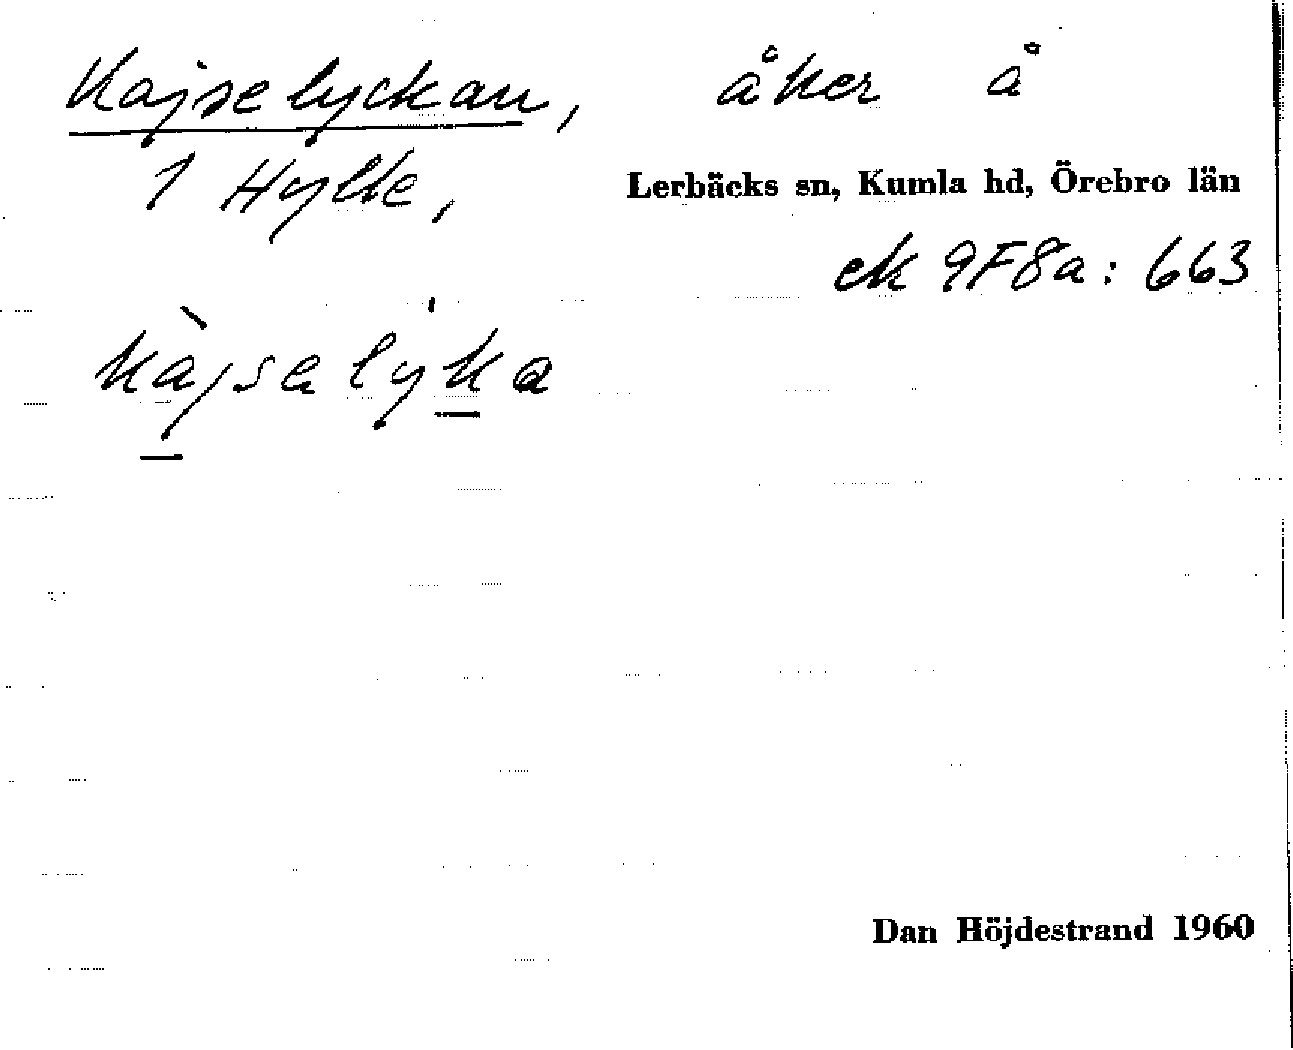 Kajselyckan, åker å
1 Hylte, Lerbäcks sn, Kumla hd, Örebro län
ek 9F8a: 663
kàjsalyka
Dan Höjdestrand 1960